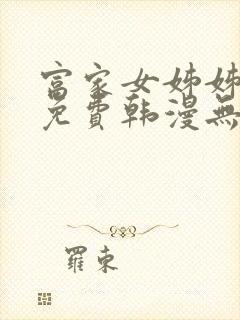 富家女姊姊
免費韩漫無
羅東